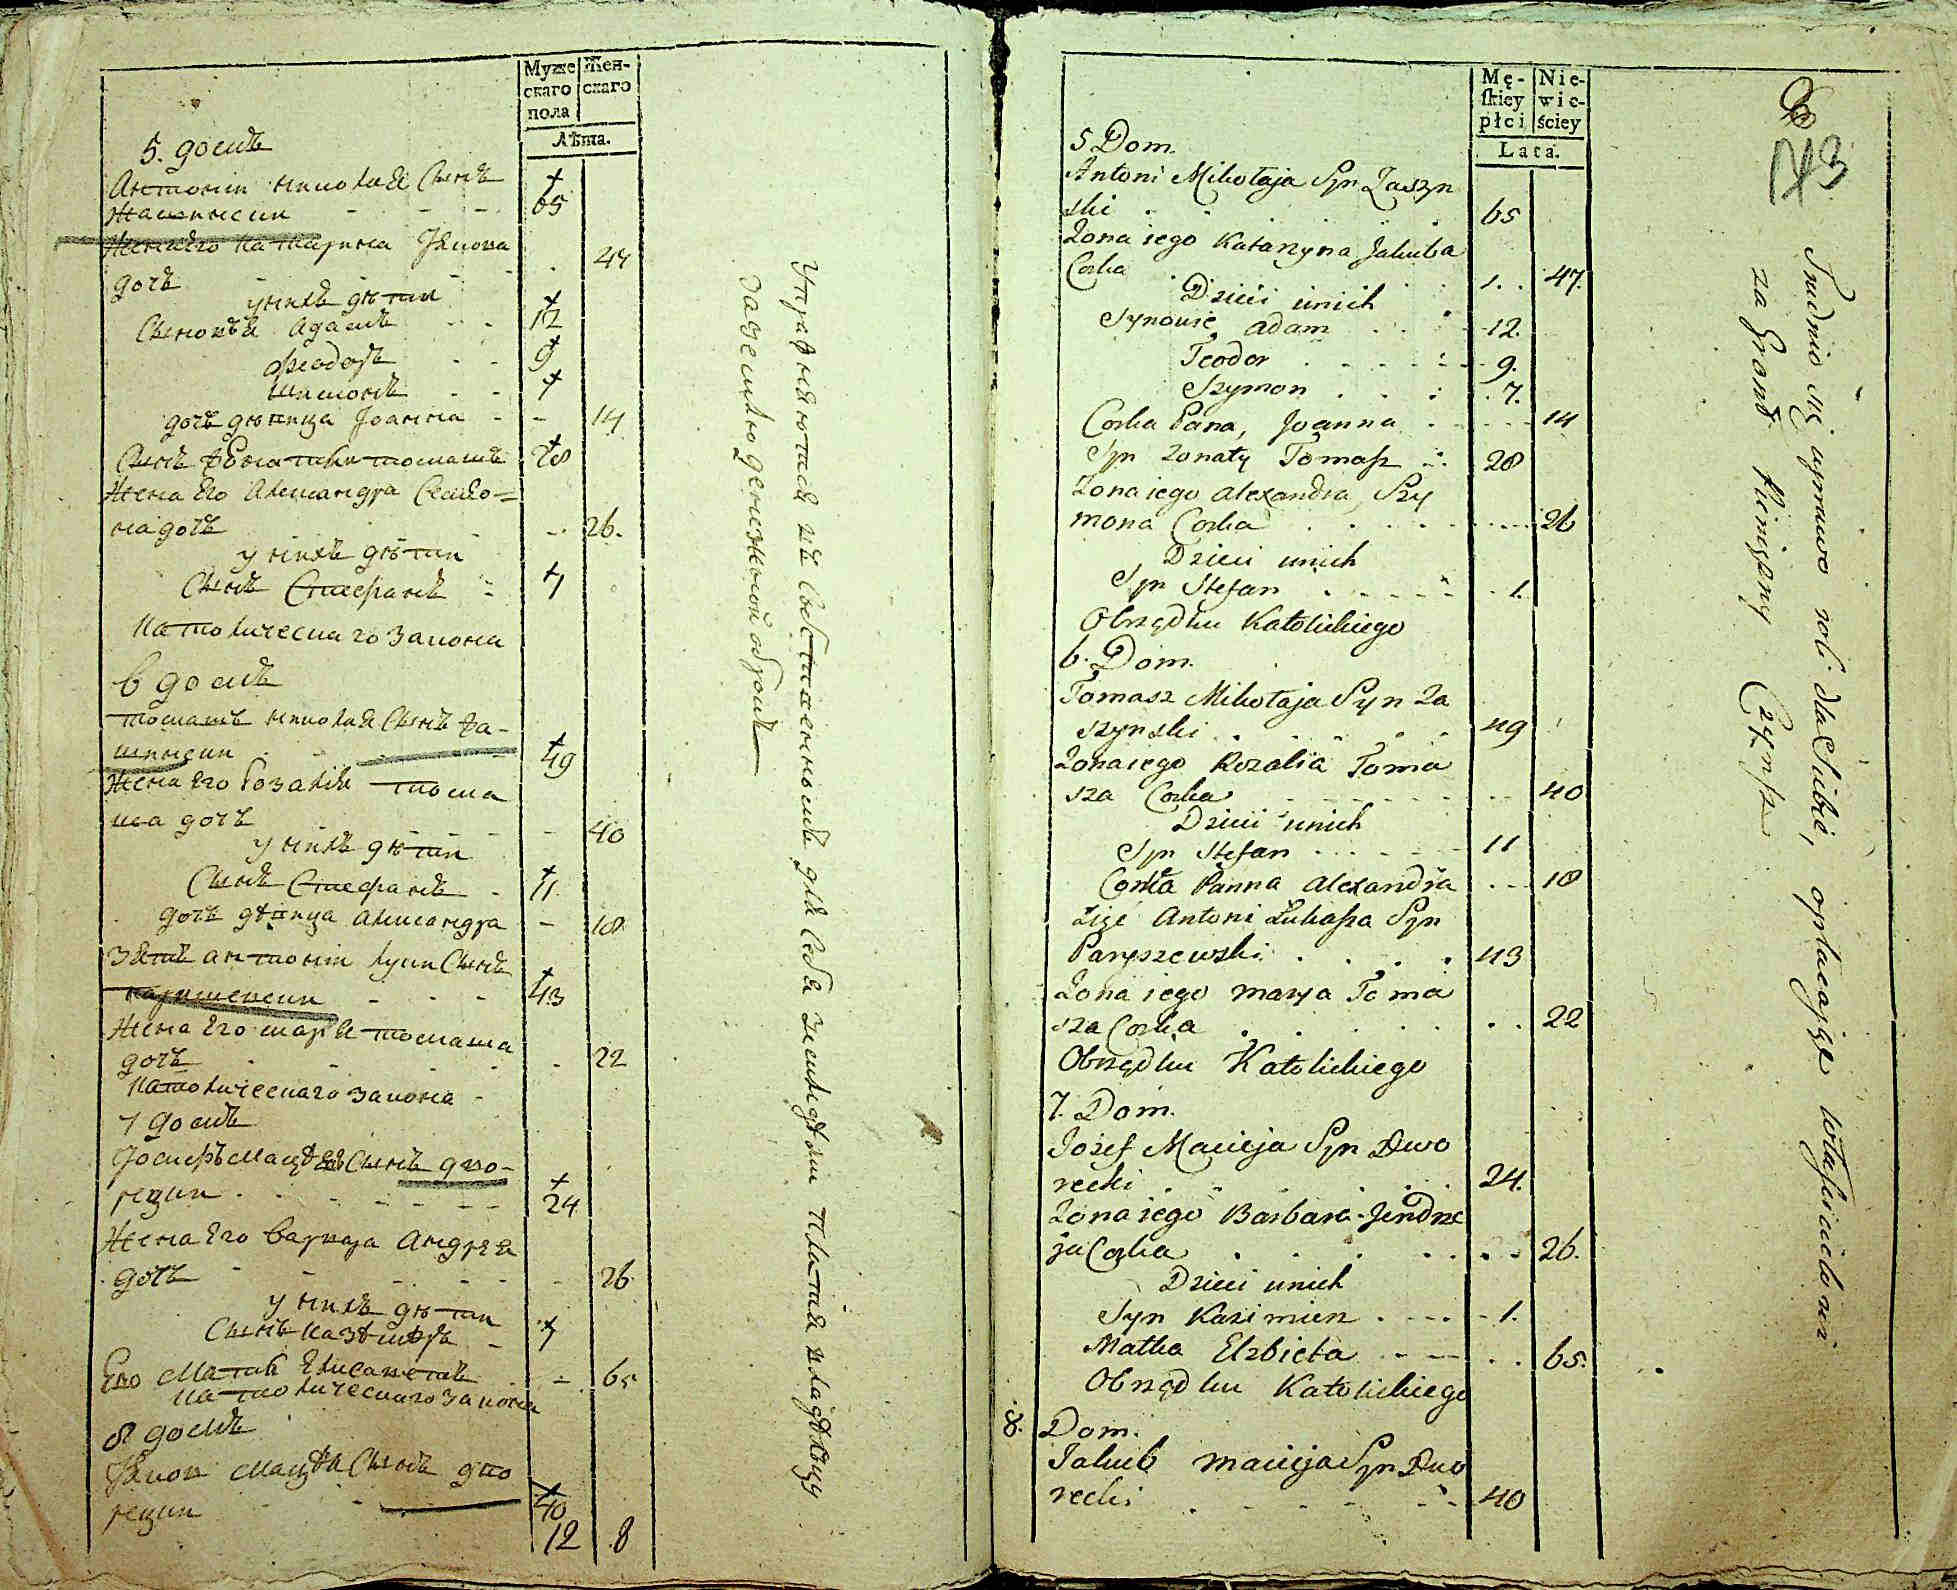 Муже
скаго
пола
Жен-
скаго
Лѣта.
5. домъ
Антонии николая Сынъ
Жашински - - - 65
Жена Его катарина Якиова
дочь 47
у нихъ дѣти
Сыновья адамъ - - 12
феодоръ - - 9
шимонъ - - 7
дочь дѣвица Joанна - - 14
Сынъ томашъ 28
Жена Его Александра Семио=
на дочь - 26.
у нихъ дѣти
Сынъ Стефанъ - 1
Католическаго закона
6 домъ
томашъ николая Сынъ За-
шински - - 49
Жена Его Розалия тома
ша дочь - - 40
у нихъ дѣти
Сынъ Стефанъ - 11.
дочь дѣвица александра - 18
Зять антонии луки Сынъ
паришевски - - - 43
Жена Его марья томаша
дочь 22
католическаго закона -
7 домъ
Jосифъ мацѣя Сынъ дво-
рецки - - - - 24
Жена Его барбара андрея
дочь - - - 26
у нихъ дѣти
Сынъ казимиръ - 1
Его мать Елисавета - 65
католическаго закона
8 домъ
Якиов мацѣя Сынъ дво
рецки - 40
12 8
Упражняются въ
для себя
платя владѣльцу
за землю денежной оброкъ
Mę-
skiey
płci
Nie-
wie-
ściey
Lata.
73
5 Dom.
Antoni Mikołaja Syn Zaszyn
ski . . 65
Zona iego Katarzyna Jakuba
Corka . . . 47.
Dzieci unich
Synowie adam . . . 12.
Teodor . . . . 9.
Szymon . . . . 7.
Corka Pana, Joanna . . . . 14
Syn Zonaty Tomasz . . 28
Zona iego alexandra, Szy
mona Corka . . . . . 26
Dzieci unich
Syn Stefan . . . . . 1.
Obrządku Katolickiego
6. Dom.
Tomasz Mikołaja Syn Za
szynski . . . . . 49
Zona iego Rozalia Toma
sza Corka - - - - 40
Dzieci unich
Syn Stefan - - - - 11
Corka Panna alexandra . . . 18
Zięć Antoni Łukasza Syn
Paryszewski . . . . 43
Zona iego marya Toma
sza Corka . . . . . 22
Obrządku Katolickiego
7. Dom.
Jozef Macieja Syn Dwo
recki . . . . . 24.
Zona iego Barbara Jendrze
ja Corka . . . . . 26.
Dzieci unich
Syn Kazimierz . . . . 1.
Matka Elzbieta - - - . . 65.
Obrządku Katolickiego
8. Dom.
Jakub macieja Syn Dwo
recki . - - - - 40
Trudnio się uprawo roli dla Siebie, opłacając
za Grunt Pieniężny Czynsz